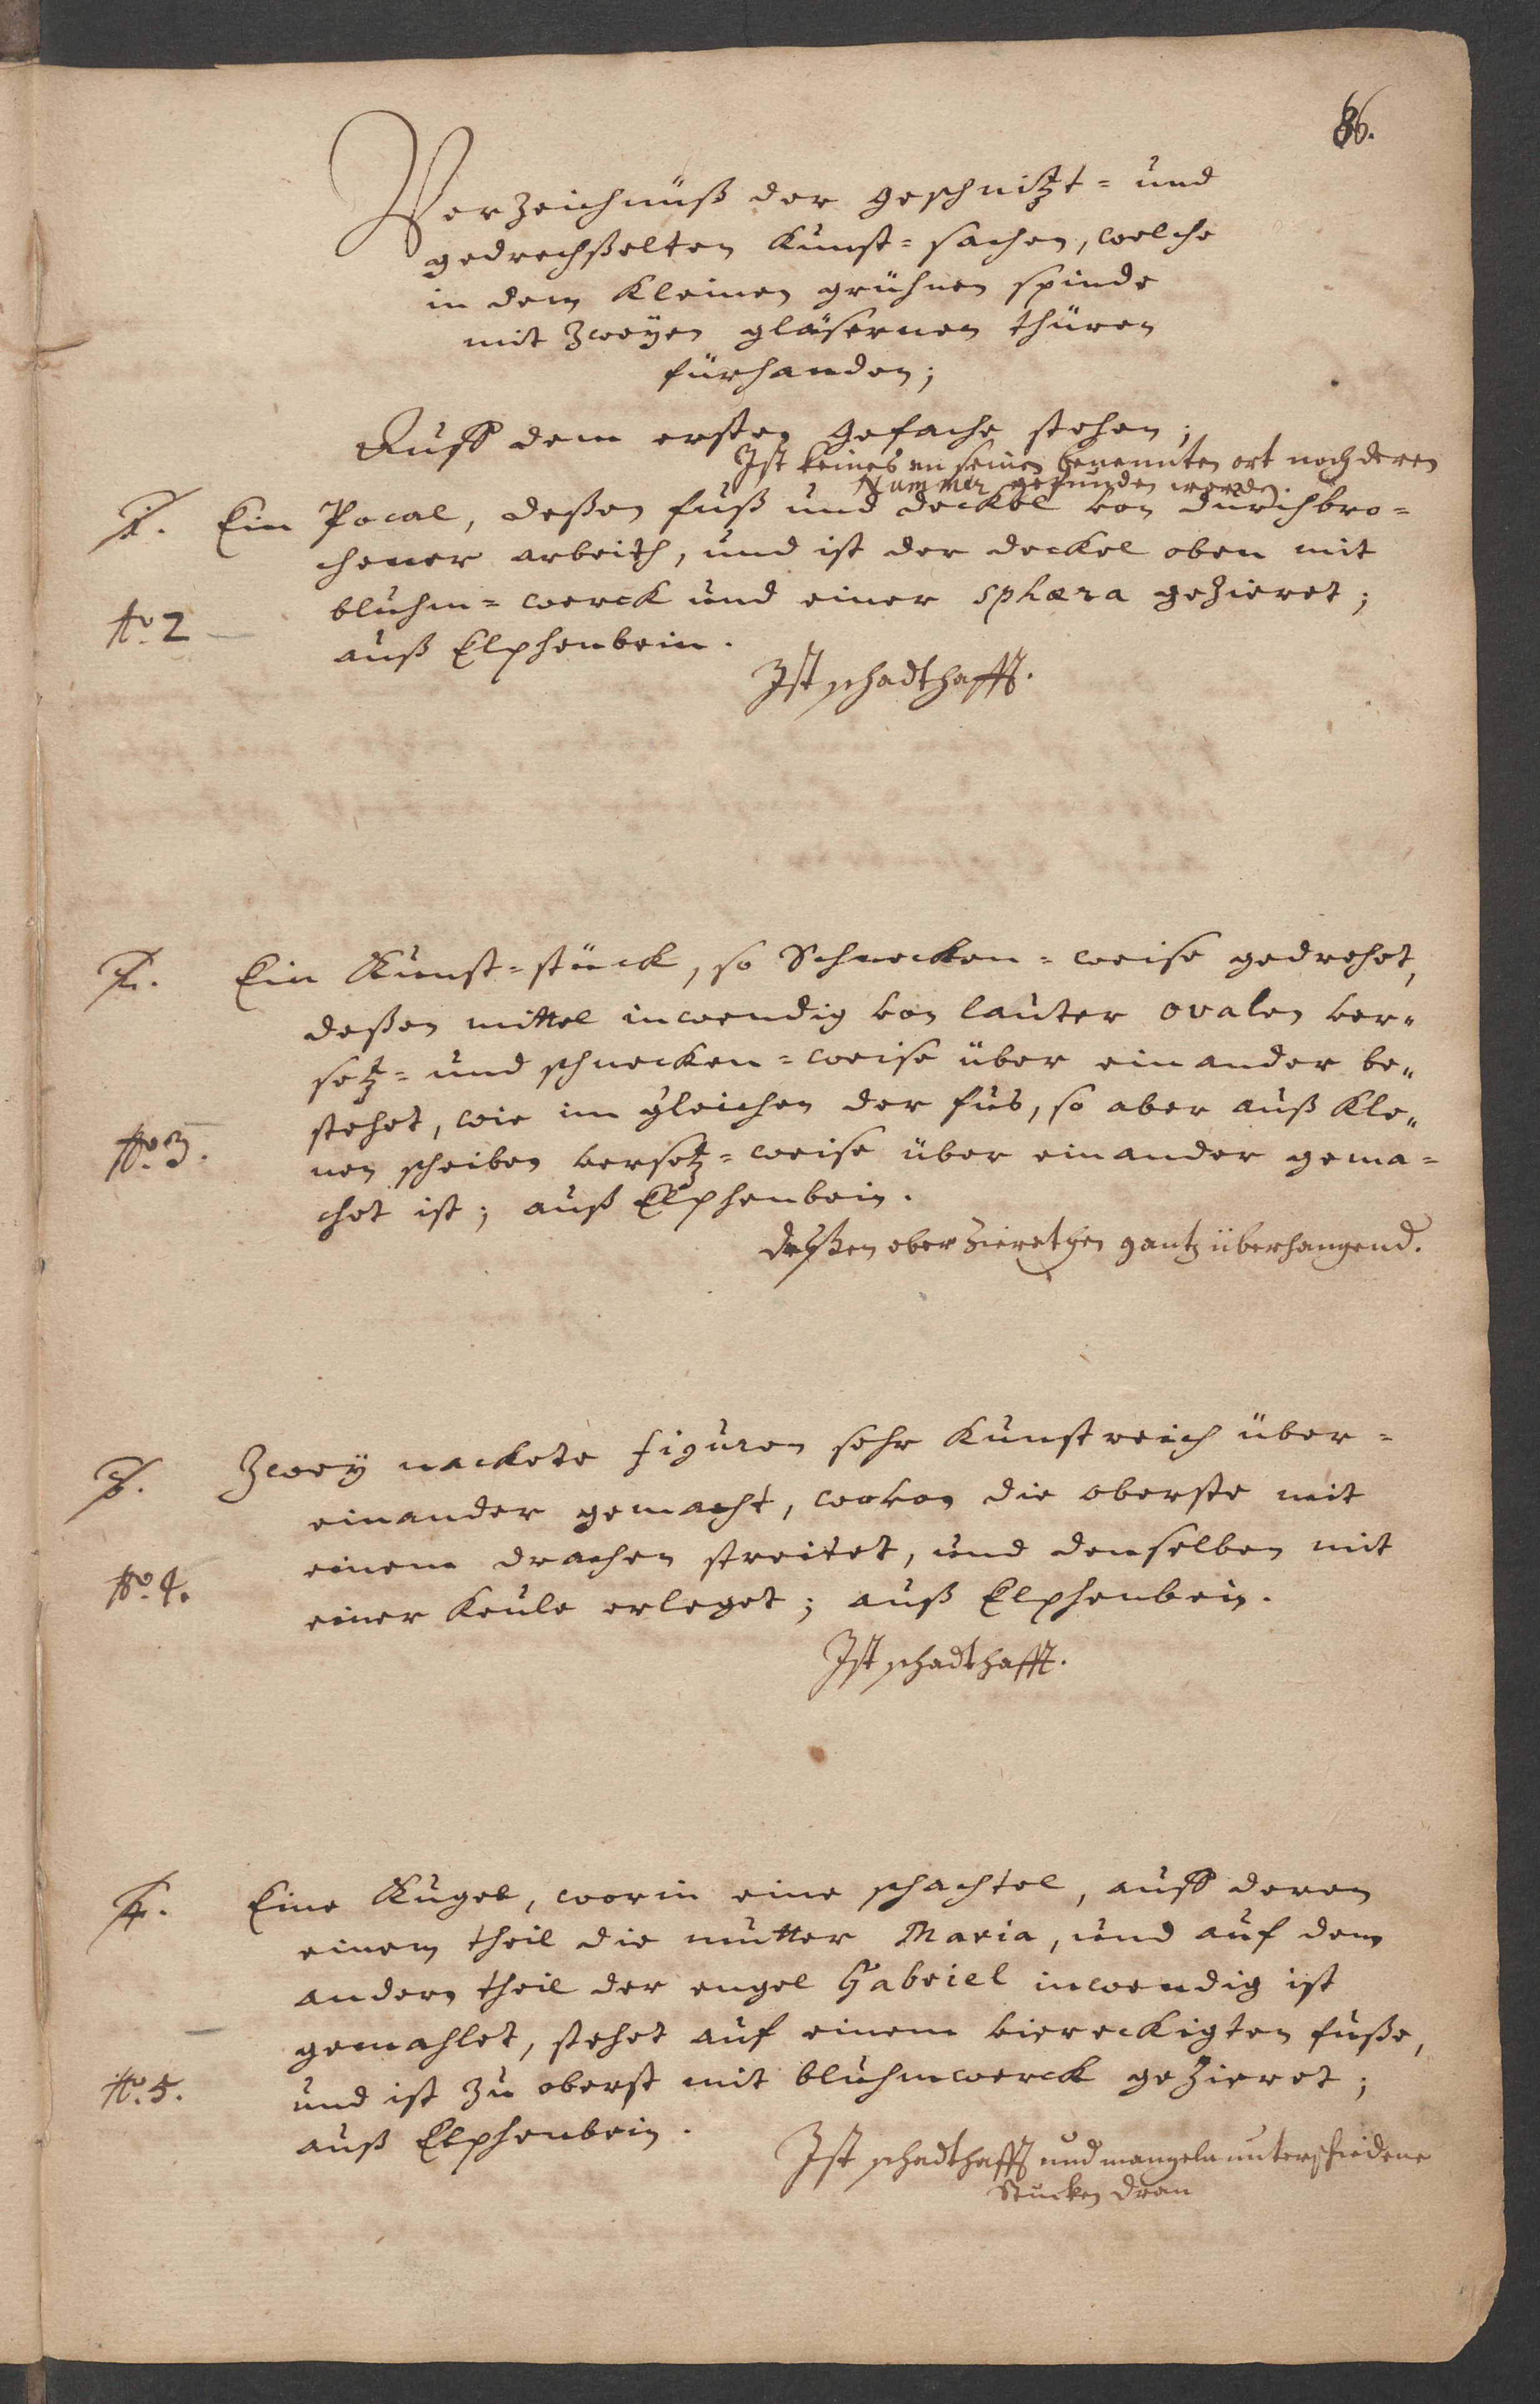 86.
Verzeichnüß der geschnitzt= und
gedrechßelten Kunst=sachen, welche
in dem Kleinen grühnen spinde
mit zweÿen gläsernen thüren
fürhanden;
Auff dem ersten gefache stehen;
Ist keines an seinen benennten ort noch deren
Nummer gefunden worden.
1. Ein Pocal, deßen fuß und deckel von durchbro=
chener arbeith, und ist der deckel oben mit
bluhm=werck und einer sphæra gezieret;
No. 2
auß Elphenbein.
Ist schadthafft.
2. Ein Kunst=stück, so Schnecken=weise gedrehet,
deßen mittel inwendig von lauter ovalen ver„
setz= und schnecken=weise über einander be„
stehet, wie im gleichen der fus, so aber auß Kle„
No. 3.
nen scheiben versetz=weise über einander gema=
chet ist; auß Elphenbein.
deßen ober Zierathen gantz überhangend.
3. Zweÿ nackete figuren sehr Kunstreich über=
einander gemacht, wovon die oberste mit
einem drachen streitet, und denselben mit
No. 4.
einer Keule erleget; auß Elphenbein.
Ist schadthafft.
4. Eine Kugel, worin eine schachtel, auff deren
einem theil die mutter Maria, und auf dem
andern theil der engel Gabriel inwendig ist
gemahlet, stehet auf einem viereckigten fuße,
No. 5.
und ist zu oberst mit bluhmwerck gezieret;
auß Elphenbein.
Ist schadthafft und mangeln unterschiedene
Stücken dran